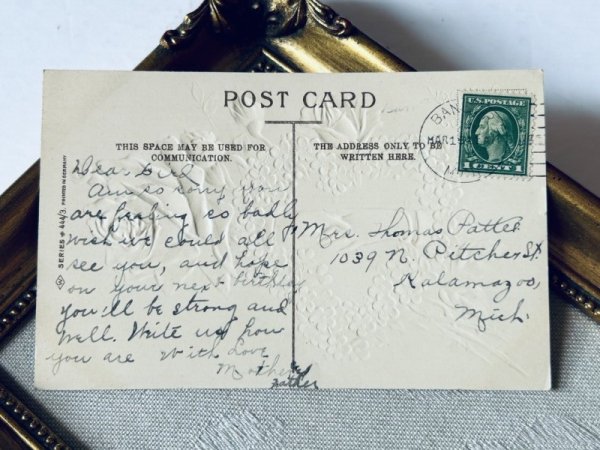 POST CARD
THIS SPACE MAY BE USED FOR
COMMUNICATION.
THE ADDRESS ONLY TO BE
WRITTEN HERE.
SERIES # 444/3. PRINTED IN GERMANY
U.S. POSTAGE
1 CENT 1
BAN
MAR 1
M
Dear Girl
Am so sorry you
are feeling so badly
wish we could all
see you, and hope
on your next birthday
you'll be strong and
well. Write us how
you are With Love
Mother &
Father
Mrs. Thomas
1039 N. Pitcher St
Kalamazoo,
Mich.